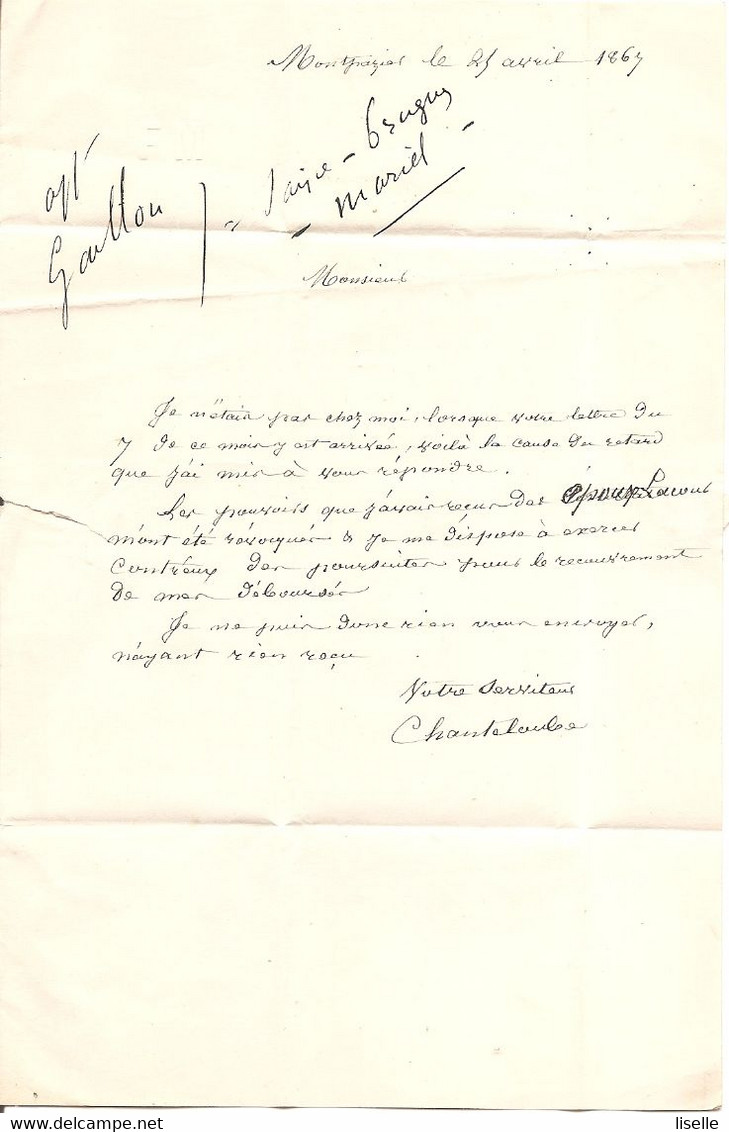 Montpazier le 25 avril 1867
aff
Gaillou
Saise - Brugues
Mariel -
Monsieur
Je n'étais pas chez moi, lorsque votre lettre du
7 de ce mois y est arrivée, voilà la cause du retard
que j'ai mis à vous répondre.
Les pouvoirs que j'avais reçus des époux Lacour
m'ont été révoqués & je me dispose à exercer
contr'eux des poursuites pour le recouvrement
de mes déboursés
Je ne puis donc rien vous envoyer,
n'ayant rien reçu
Votre serviteur
Chanteloube
Delcampe.net
liselle